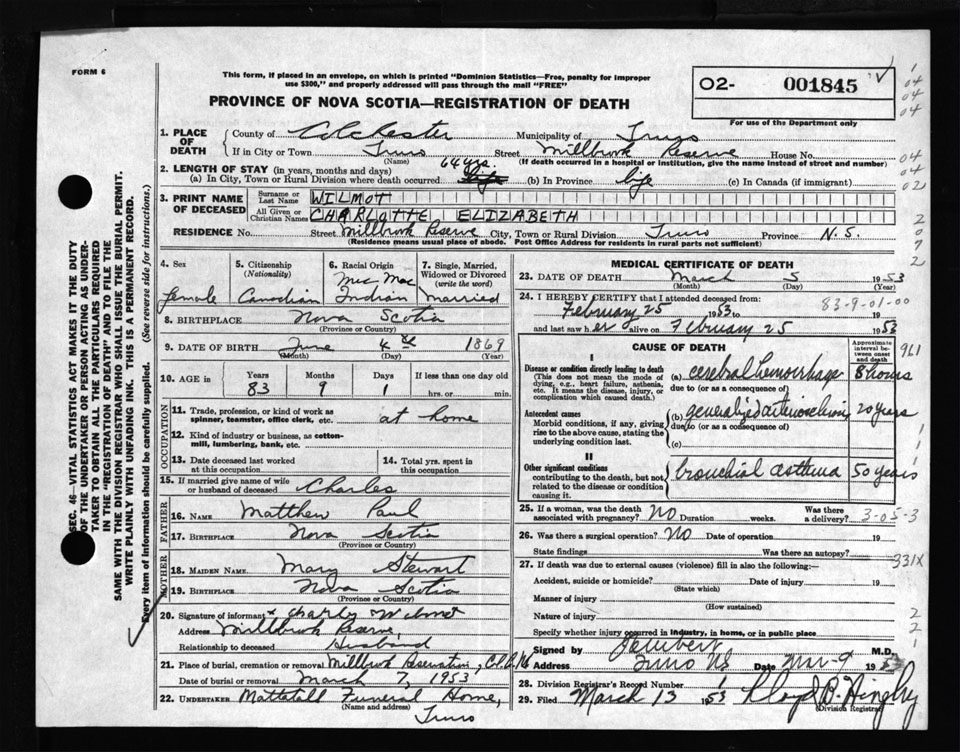 FORM 6
This form, if placed in an envelope, on which is printed "Dominion Statistics—Free, penalty for improper
use $300," and properly addressed will pass through the mail "FREE"
PROVINCE OF NOVA SCOTIA—REGISTRATION OF DEATH
O2- 001845
For use of the Department only
1. PLACE OF DEATH
County of Colchester Municipality of Truro
If in City or Town Truro Street Millbrook Reserve House No.
(Name) (If death occurred in a hospital or institution, give the name instead of street and number)
2. LENGTH OF STAY (in years, months and days)
64 yrs.
(a) In City, Town or Rural Division where death occurred life (b) In Province life (c) In Canada (if immigrant)
3. PRINT NAME OF DECEASED
Surname or Last Name WILMOT
All Given or Christian Names CHARLOTTE ELIZABETH
RESIDENCE No. Street Millbrook Reserve City, Town or Rural Division Truro Province N.S.
(Residence means usual place of abode. Post Office Address for residents in rural parts not sufficient)
4. Sex female
5. Citizenship (Nationality) Canadian
6. Racial Origin Mic Mac Indian
7. Single, Married, Widowed or Divorced (write the word) married
8. BIRTHPLACE Nova Scotia
(Province or Country)
9. DATE OF BIRTH June 4th 1869
(Month) (Day) (Year)
10. AGE in Years 83 Months 9 Days 1 If less than one day old
hrs. or min.
OCCUPATION
11. Trade, profession, or kind of work as spinner, teamster, office clerk, etc. at home
12. Kind of industry or business, as cotton-mill, lumbering, bank, etc.
13. Date deceased last worked at this occupation
14. Total yrs. spent in this occupation
15. If married give name of wife or husband of deceased Charles
FATHER
16. NAME Matthew Paul
17. BIRTHPLACE Nova Scotia
(Province or Country)
MOTHER
18. MAIDEN NAME Mary Stewart
19. BIRTHPLACE Nova Scotia
(Province or Country)
20. Signature of informant x Charly Wilmot
Address Millbrook Reserve,
Relationship to deceased Husband
21. Place of burial, cremation or removal Millbrook Reservation,
Date of burial or removal March 7, 1953
22. UNDERTAKER Mattatall Funeral Home,
(Name and address) Truro
MEDICAL CERTIFICATE OF DEATH
23. DATE OF DEATH March 5 1953
(Month) (Day) (Year)
24. I HEREBY CERTIFY that I attended deceased from:
February 25 1953 to 19
83-9-01-00
and last saw her alive on February 25 1953
CAUSE OF DEATH
Approximate interval between onset and death
I
Disease or condition directly leading to death (a) cerebral hemorrhage 8 hours
(This does not mean the mode of dying, e.g., heart failure, asthenia, etc. It means the disease, injury, or complication which caused death.)
due to (or as a consequence of)
Antecedent causes (b) generalized arteriosclerosis 20 years
Morbid conditions, if any, giving rise to the above cause, stating the underlying condition last.
due to (or as a consequence of)
(c)
II
Other significant conditions bronchial asthma 50 years
contributing to the death, but not related to the disease or condition causing it.
961
25. If a woman, was the death associated with pregnancy? NO Duration weeks. Was there a delivery? 3-05-3
26. Was there a surgical operation? NO Date of operation 19
State findings Was there an autopsy?
331X
27. If death was due to external causes (violence) fill in also the following:—
Accident, suicide or homicide? Date of injury 19
(State which)
Manner of injury
(How sustained)
Nature of injury
Specify whether injury occurred in industry, in home, or in public place
Signed by M.D.
Address Truro NS Date Mar-9 1953
28. Division Registrar's Record Number 1
29. Filed March 13 1953
(Division Registrar)
SEC. 46—VITAL STATISTICS ACT MAKES IT THE DUTY
OF THE UNDERTAKER OR PERSON ACTING AS UNDER-
TAKER TO OBTAIN ALL THE PARTICULARS REQUIRED
IN THE "REGISTRATION OF DEATH" AND TO FILE THE
SAME WITH THE DIVISION REGISTRAR WHO SHALL ISSUE THE BURIAL PERMIT.
WRITE PLAINLY WITH UNFADING INK. THIS IS A PERMANENT RECORD.
Every item of Information should be carefully supplied. (See reverse side for instructions.)